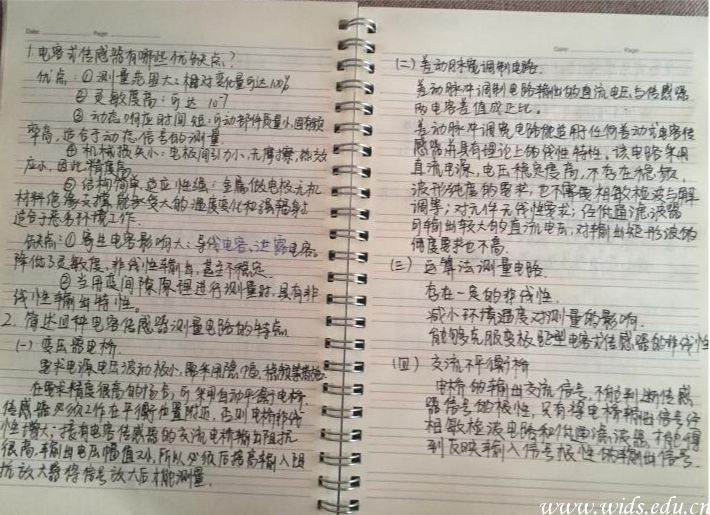 Date: Page:
1.电容式传感器有哪些优缺点?
优点:①测量范围大:相对变化量可达100%
②灵敏度高:可达 10⁻⁷
③动态响应时间短:可动部件质量小,固有频
率高,适合于动态信号的测量.
④机械损失小:电极间引力小,无摩擦,热效
应小,因此精度高
⑤结构简单,适应性强:金属做电极,无机
材料做绝缘支撑,能承受大的温度变化和强辐射,
适合于恶劣环境工作.
缺点:①寄生电容影响大:导线电容、泄露电容.
降低了灵敏度,非线性输出,甚至不稳定
②当用变间隙原理进行测量时,具有非
线性输出特性。
2.简述四种电容传感器测量电路的特点
(一)变压器电桥.
要求电源电压波动极小,需采用稳幅、稳频等措施
在要求精度很高的场合,可采用自动平衡电桥
传感器必须工作在平衡位置附近,否则电桥非线
性增大;接有电容传感器的交流电桥输出阻抗
很高,输出电压幅值又小,所以必须后接高输入阻
抗放大器将信号放大后才能测量.
Date: Page:
(二)差动脉宽调制电路.
差动脉冲调制电路输出的直流电压与传感器
两电容差值成正比。
差动脉冲调宽电路能适用任何差动式电容传
感器,并具有理论上的线性特性。该电路采用
直流电源,电压稳定度高,不存在稳频、
波形纯度的要求,也不需要相敏检波与解
调等;对元件无线性要求;经低通滤波器
可输出较大的直流电压,对输出矩形波的
纯度要求也不高.
(三)运算法测量电路.
存在一定的非线性.
减小环境温度对测量的影响.
能够克服变极距型电容式传感器的非线性
(四)交流不平衡桥
电桥的输出交流信号,不能判断传感
器信号的极性,只有将电桥输出信号经
相敏检波电路和低通滤波器,才能得
到反映输入信号极性的输出信号.
www.wids.edu.cn